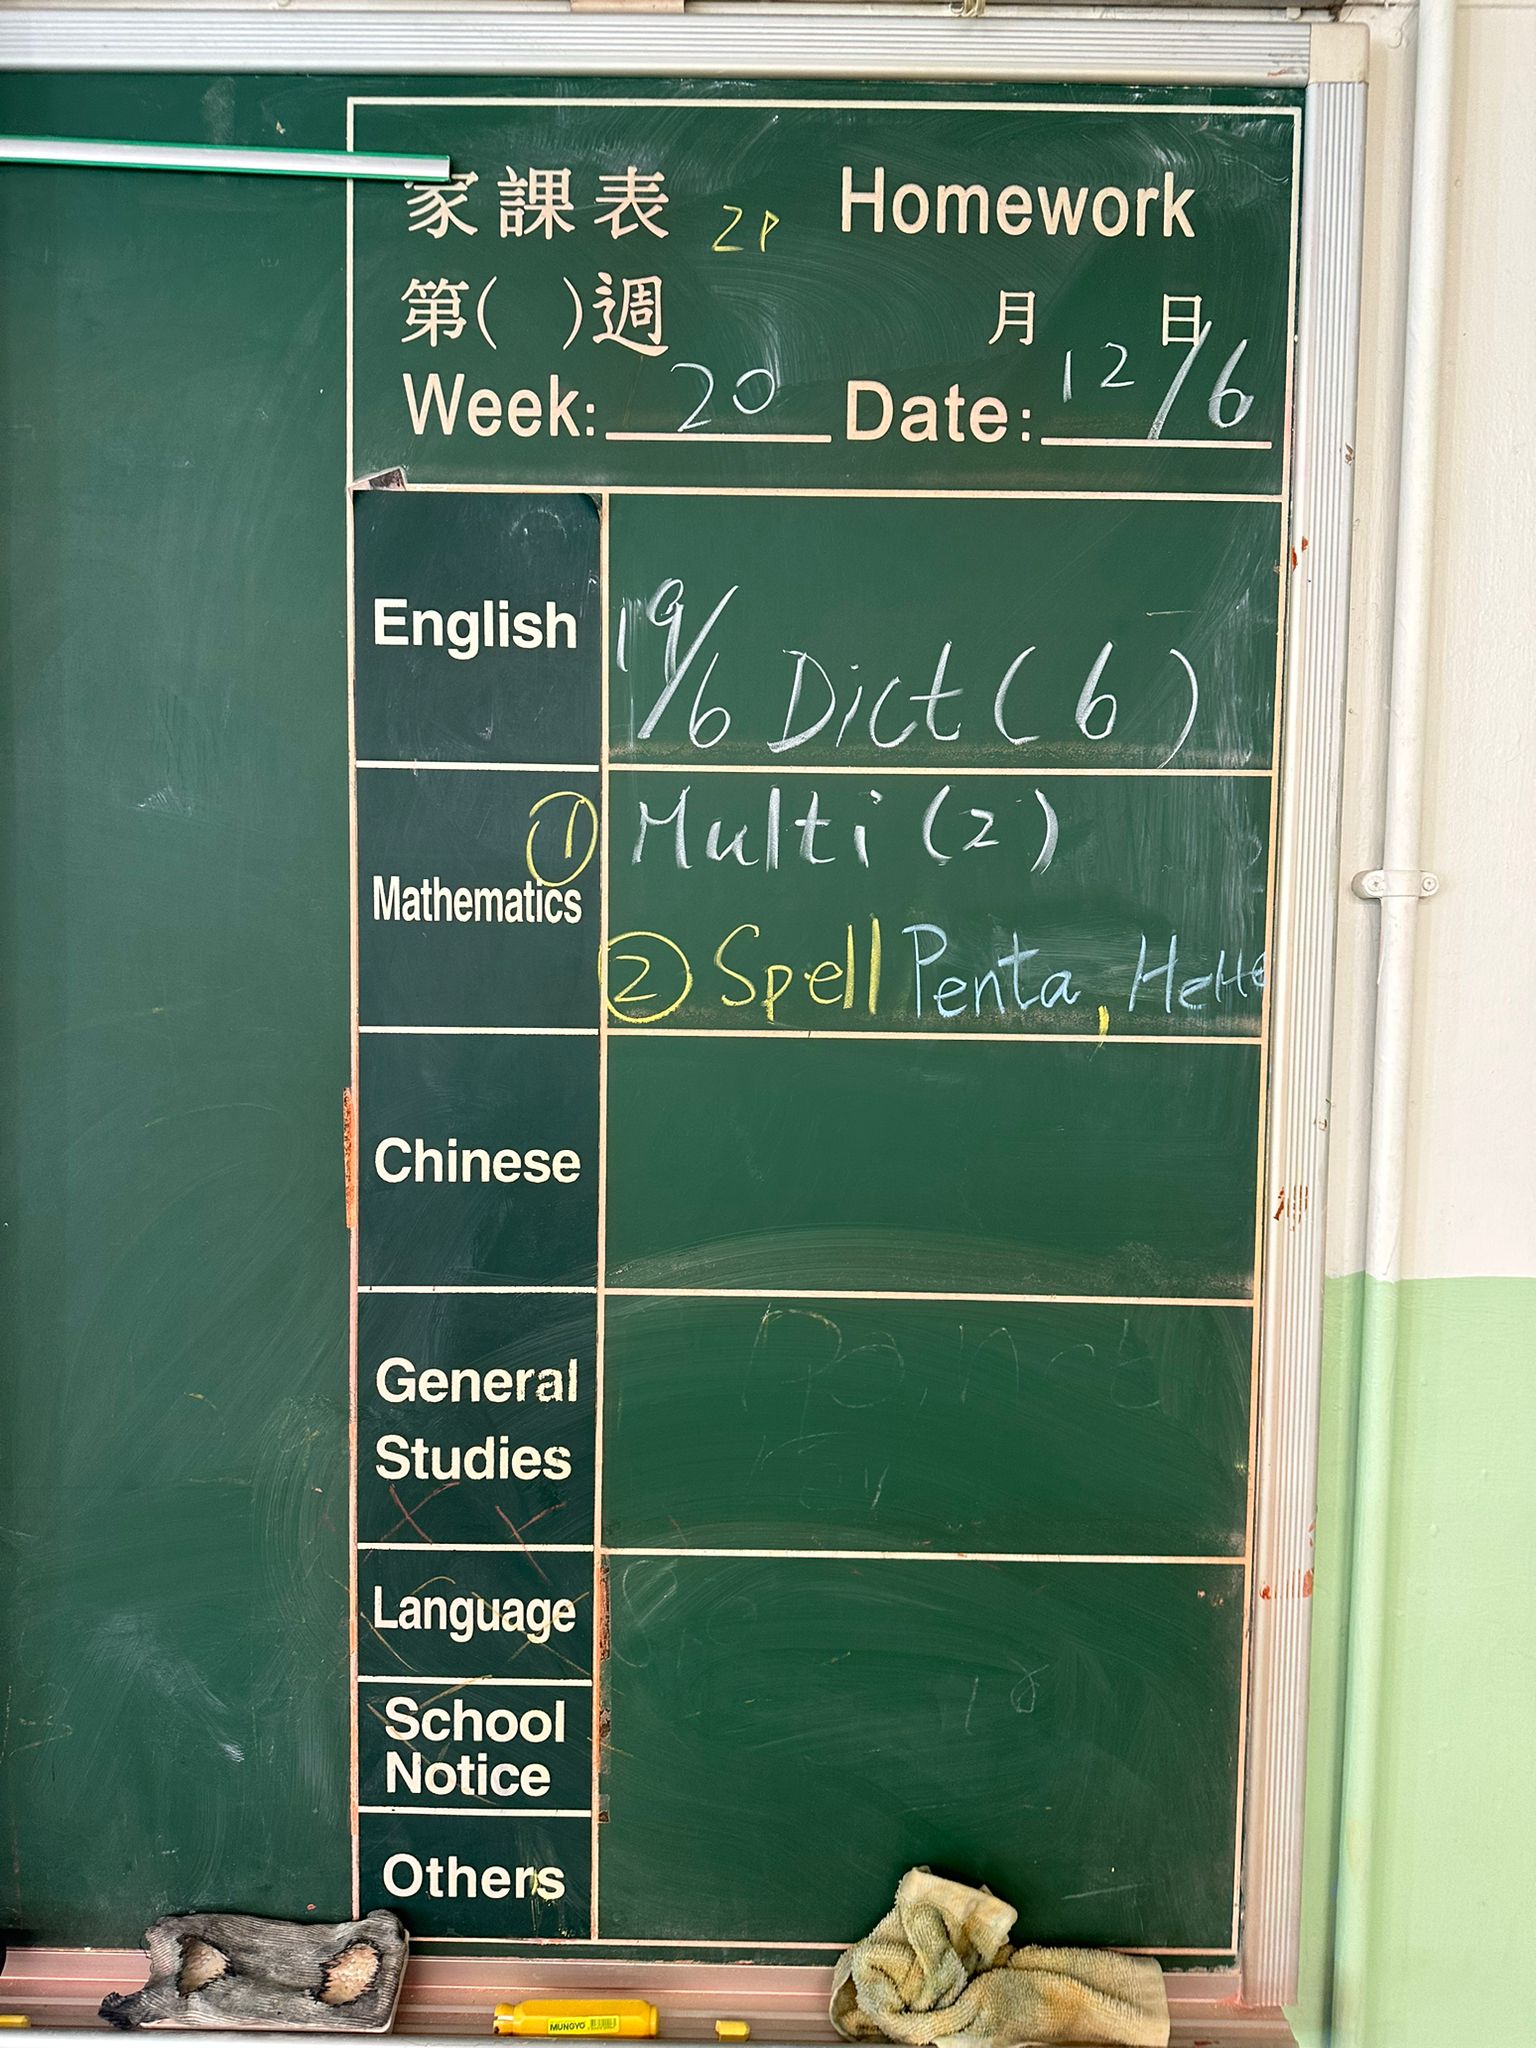 家課表 2P Homework
第( )週 月 日
Week: 20 Date: 12/6
English 19/6 Dict (6)
① Multi (2)
Mathematics
② Spell Penta,
Chinese
General
Studies
Language
School
Notice
Others
MUNGYO